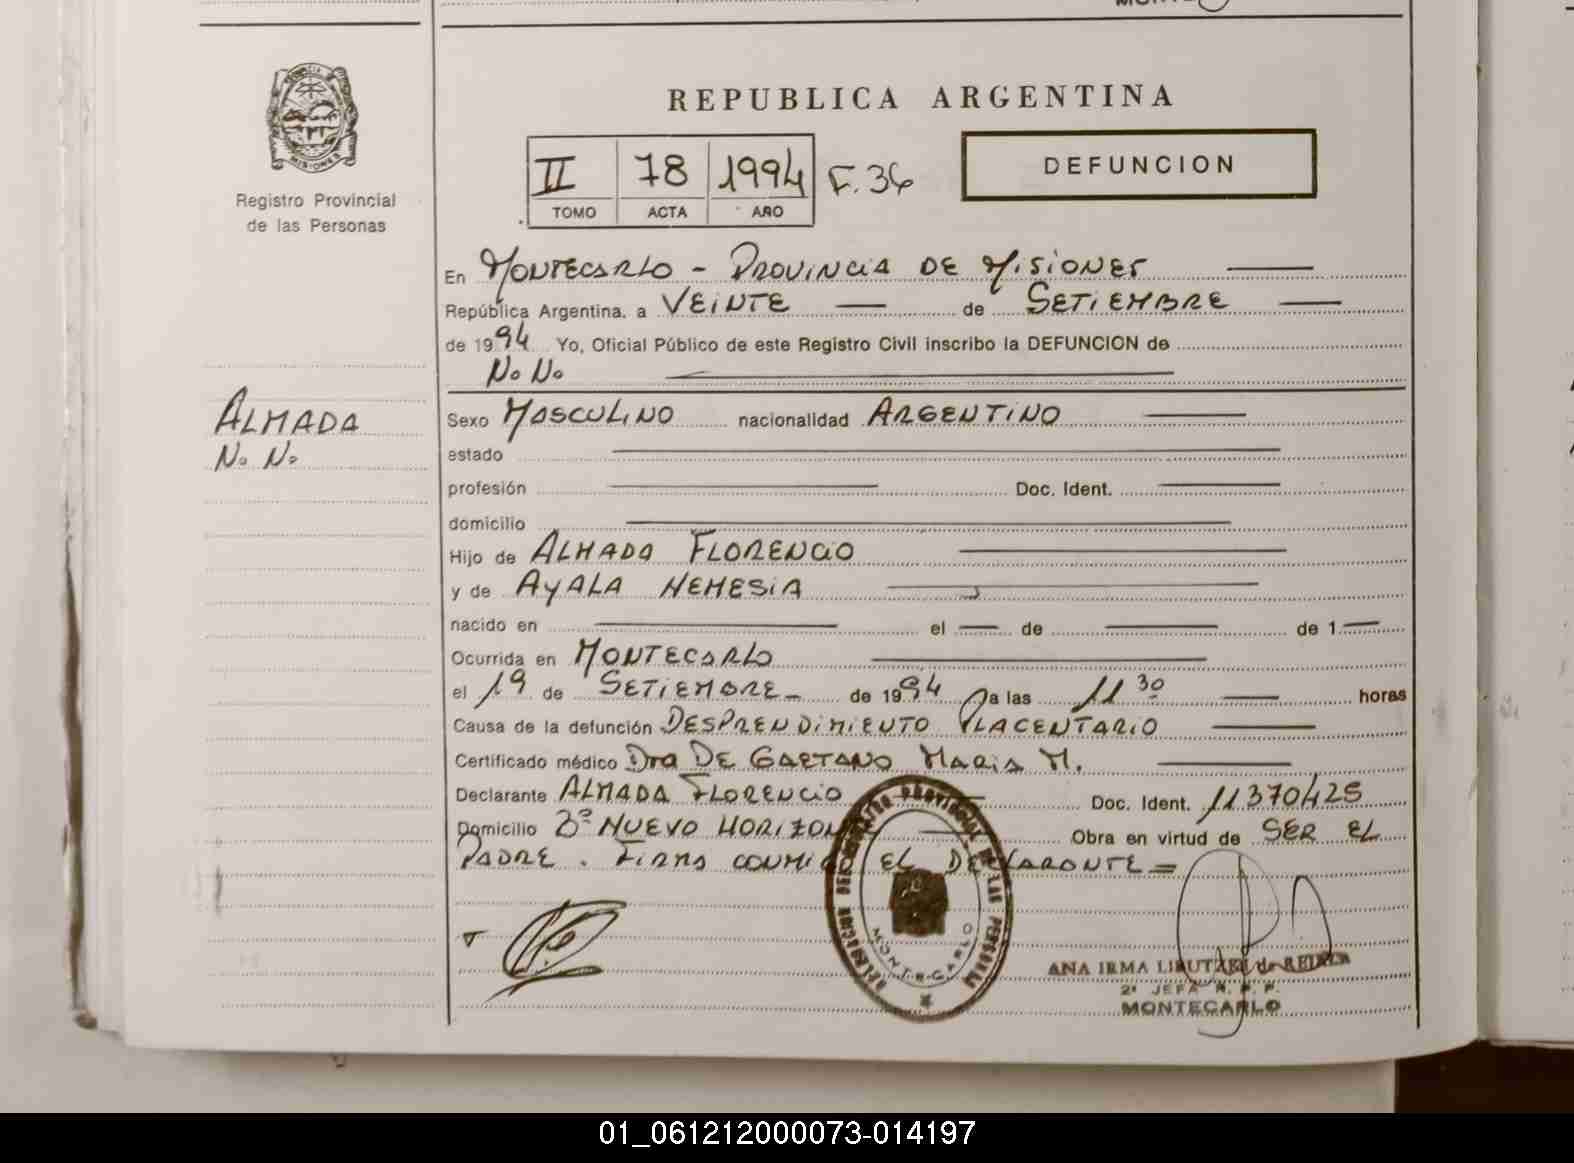 REPUBLICA ARGENTINA
II 78 1994 F. 36
TOMO ACTA AÑO
DEFUNCION
PROVINCIA DE
MISIONES
Registro Provincial
de las Personas
ALMADA
N. N.
En MONTECARLO - PROVINCIA DE MISIONES
República Argentina, a VEINTE de SETIEMBRE
de 1994 Yo, Oficial Público de este Registro Civil inscribo la DEFUNCION de
N. N.
Sexo MASCULINO nacionalidad ARGENTINO
estado
profesión Doc. Ident.
domicilio
Hijo de ALMADA FLORENCIO
y de AYALA NEMESIA
nacido en el de de 1
Ocurrida en MONTECARLO
el 19 de SETIEMBRE de 1994 a las 11 30 horas
Causa de la defunción DESPRENDIMIENTO PLACENTARIO
Certificado médico Dra DE GAETANO MARIA M.
Declarante ALMADA FLORENCIO Doc. Ident. 11370425
Domicilio Bº NUEVO HORIZONTE Obra en virtud de SER EL
PADRE. FIRMA CONMIGO EL DECLARANTE =
MONTECARLO
ANA IRMA de
2ª JEFA R. P. P.
MONTECARLO
01_061212000073-014197